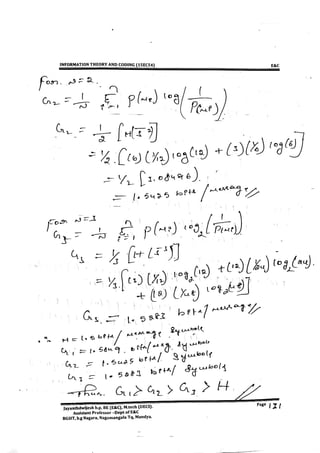 INFORMATION THEORY AND CODING (15EC54) E&C
For N=2.
G2 = 1/N Σ i=1 P(mi) log (1/P(mi))
G2 = 1/2 [H[S̄²]]
= 1/2 [(6)(1/12) log(12) + (3)(1/6) log(6)]
= 1/2 [3.08496]
= 1.5425 bits/message//
For N=3
G3 = 1/N Σ i=1 P(mi) log2 (1/P(mi))
G3 = 1/3 [H[S̄³]]
log2(12) + (12)(1/24) log(24)
G3 = bits/message//
∴ H = 1.5 bits/message symbols
G1 = bits/mesg. symbols
G2 = 1.5425 bits/ symbols
G3 = bits/ symbols
Thus, G1 > G2 > G3 > H //
Jayanthdwijesh h.p, BE (E&C), M.tech (DECS). Page 131
Assistant Professor –Dept of E&C
BGSIT, b.g Nagara, Nagamangala Tq, Mandya.